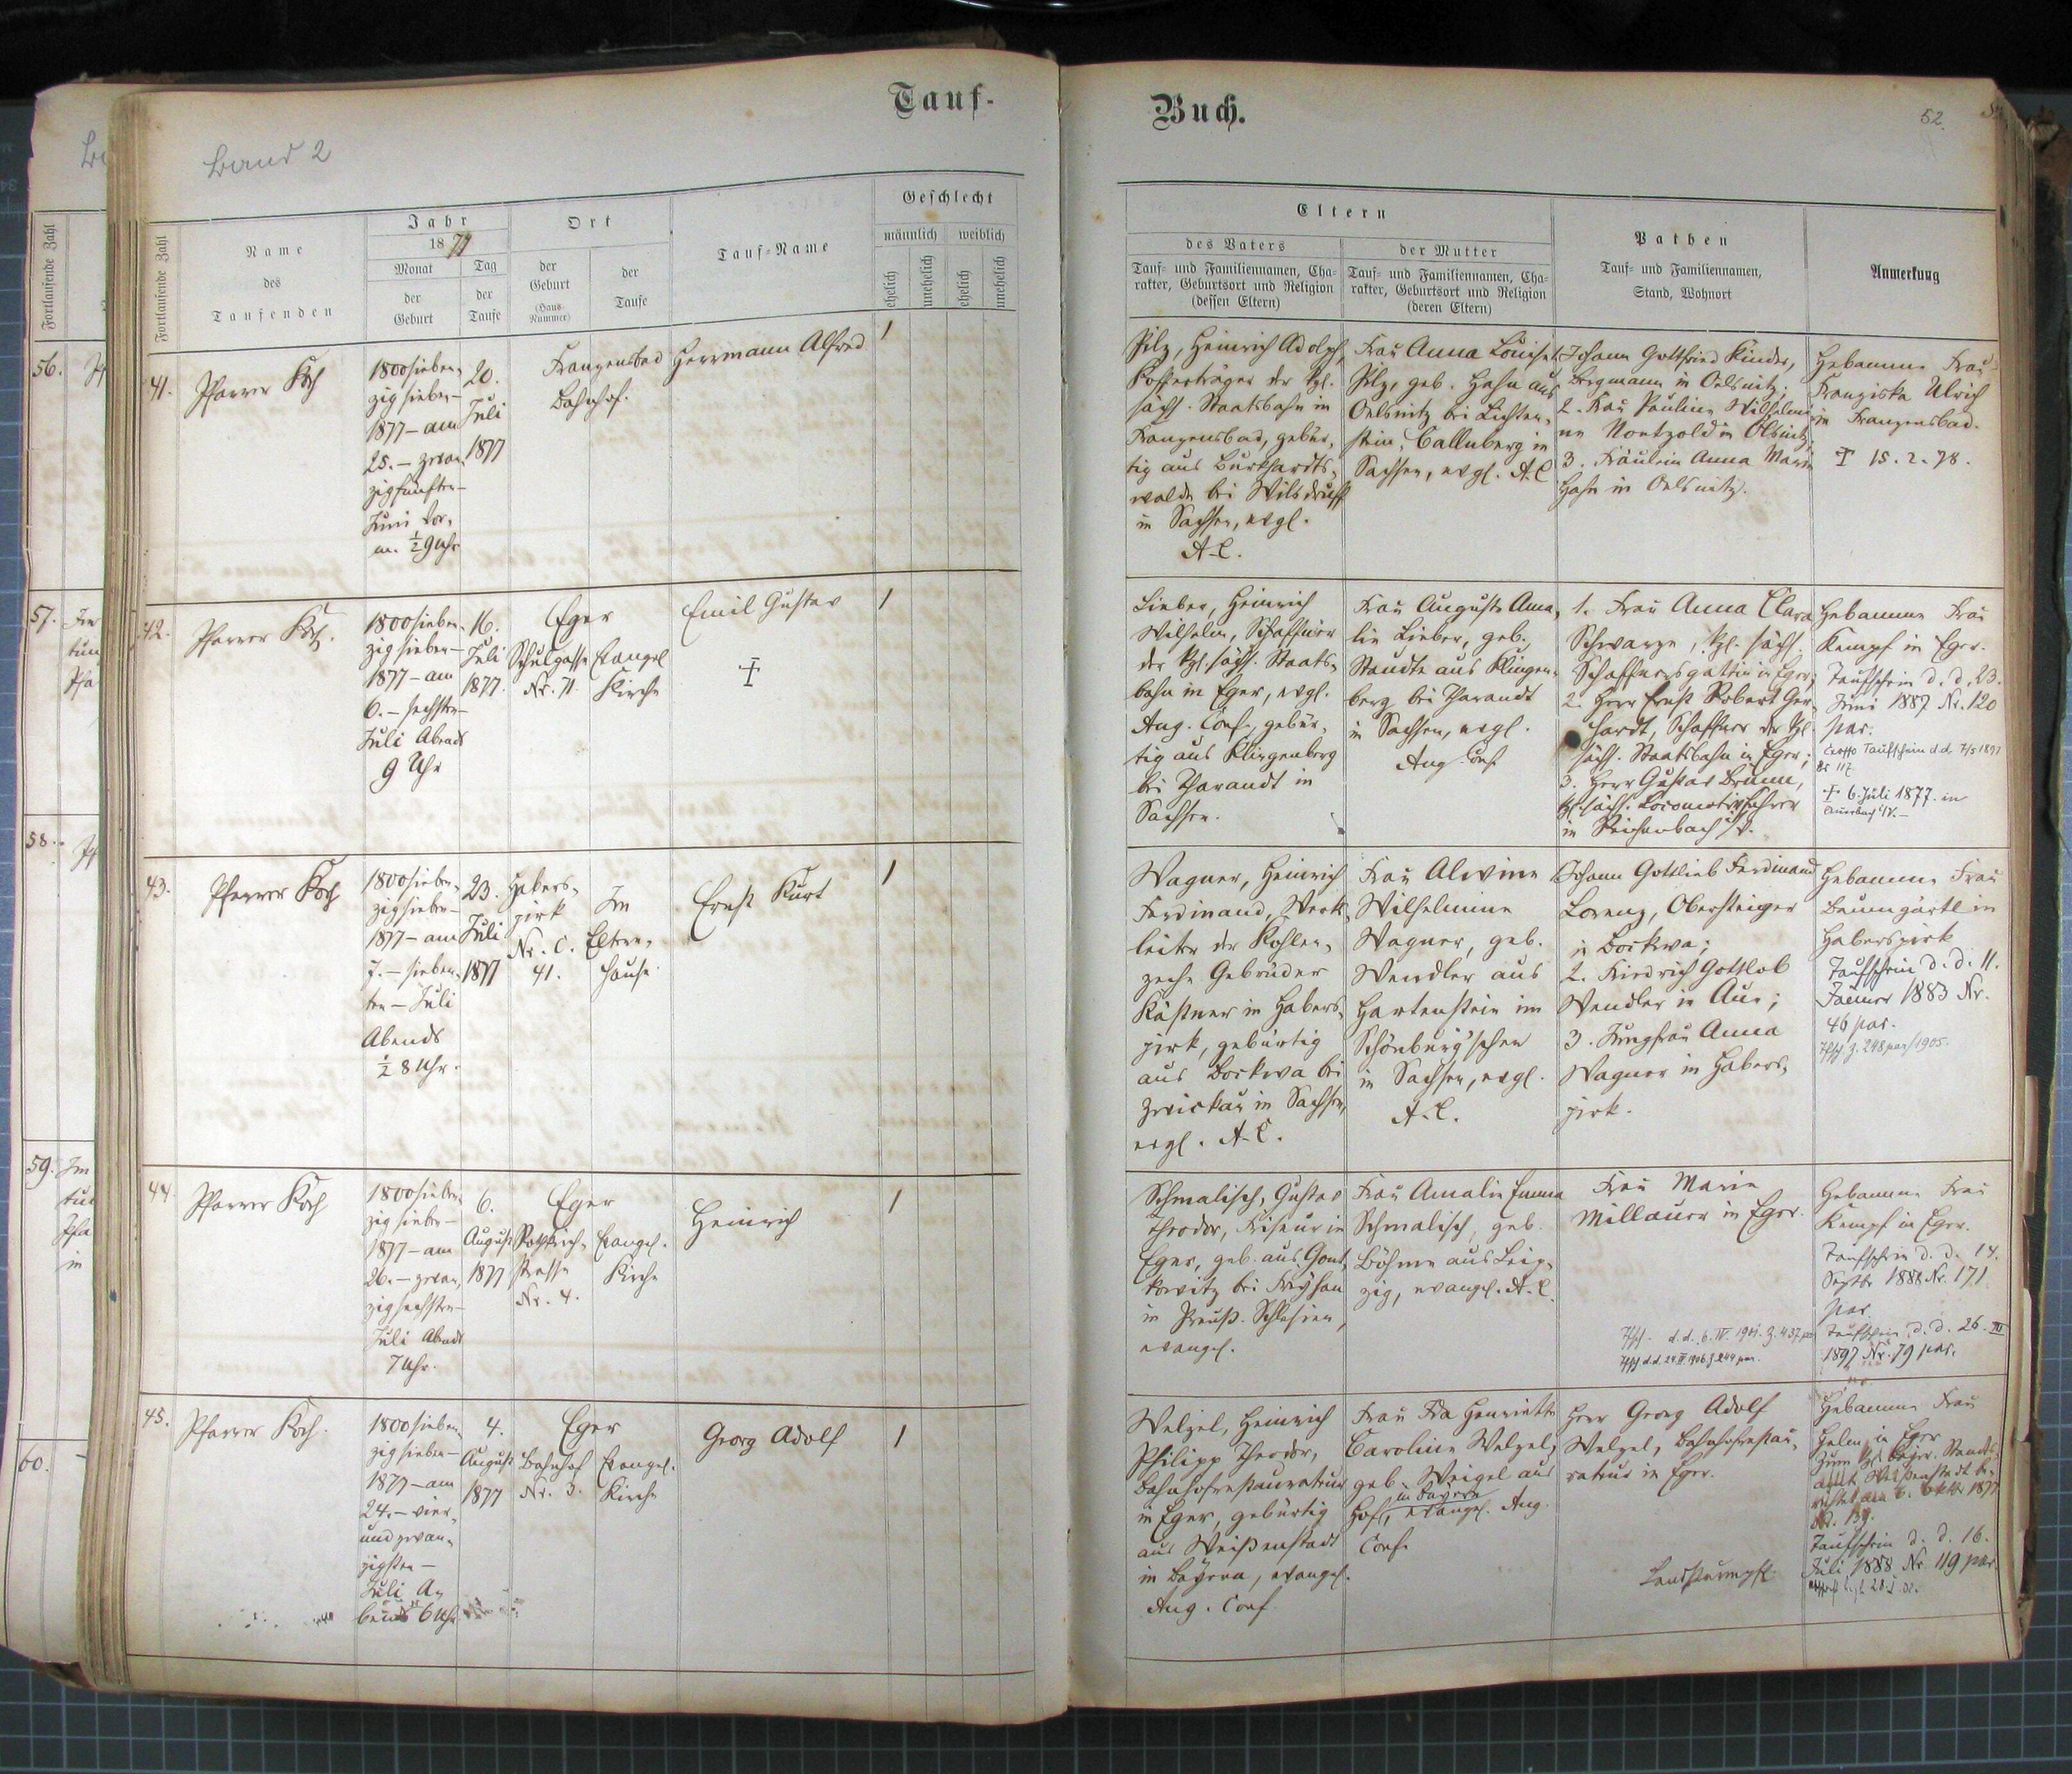 Tauf-
Buch.
Band 2
52.
Fortlaufende Zahl
Name
des
Taufenden
Jahr
1877
Monat
der
Geburt
Tag
der
Taufe
Ort
der
Geburt
(Haus-
Nummer)
der
Taufe
Tauf-Name
Geschlecht
männlich
weiblich
ehelich
unehelich
ehelich
unehelich
Eltern
des Vaters
Tauf- und Familiennamen, Cha-
rakter, Geburtsort und Religion
(dessen Eltern)
der Mutter
Tauf- und Familiennamen, Cha-
rakter, Geburtsort und Religion
(deren Eltern)
Pathen
Tauf- und Familiennamen,
Stand, Wohnort
Anmerkung
Fortlaufende Zahl
56.
57.
58.
59. Im
60.
41.
Pfarrer Koch
1800sieben-
zigsieben-
1877 - am
25. - zwan-
zigfünften-
Juni Vor-
m. ½9 Uhr
20.
Juli
1877
Franzensbad
Bahnhof.
Herrmann Alfred
1
Pilz, Heinrich Adolph,
Kofferträger der kgl.
sächs. Staatsbahn in
Franzensbad, gebür-
tig aus Burkhardts-
walde bei Wilsdruff
in Sachsen, evgl.
A.C.
Frau Anna Louise
Pilz, geb. Hahn aus
Oelsnitz bei Lichten-
stein-Callnberg in
Sachsen, evgl. A.C
1. Johann Gottfried Kinder,
Bergmann in Oelsnitz;
2. Frau Pauline Wilhelmi-
ne in Ölsnitz;
3. Fräulein Anna Marie
Hahn in Oelsnitz.
Hebamme Frau
Franziska Ulrich
in Franzensbad.
† 15.2.78.
42.
Pfarrer Koch.
1800sieben-
zigsieben-
1877 - am
6. - sechsten-
Juli Abends
9 Uhr
16.
Juli
1877.
Eger
Schulgasse
Nr. 71.
Evangel
Kirche
Emil Gustav
†
1
Lieber, Heinrich
Wilhelm, Schaffner
der kgl. sächs. Staats-
bahn in Eger, evgl.
Aug. Conf., gebür-
tig aus Klingenberg
bei Tharandt in
Sachsen.
Frau Auguste Ama-
lie Lieber, geb.
Staudte aus Klingen-
berg bei Tharandt
in Sachsen, evgl.
Aug. Conf
1. Frau Anna Clara
Schwarze, kgl. sächs.
Schaffnersgattin in Eger;
2. Herr Ernst Robert Ger-
hardt, Schaffner der kgl
sächs. Staatsbahn in Eger;
3. Herr Gustav Brunn,
kgl. sächs. Locomotivführer
in Reichenbach i/V.
Hebamme Frau
Kempf in Eger.
Taufschein d. d. 23.
Juni 1887 Nr. 120
par.
Taufschein d.d. 7/5 1897
Nr 117
† 6. Juli 1877. in
Auerbach i/V.-
43.
Pfarrer Koch
1800sieben-
zigsieben-
1877 - am
7. - sieben-
ten - Juli
Abends
½ 8 Uhr.
23.
Juli
1877
Habers-
pirk
Nr. C.
41.
Im
Eltern-
hause.
Ernst Kurt
1
Wagner, Heinrich
Ferdinand, Werk-
leiter der Kohlen-
zeche Gebrüder
Kästner in Habers-
pirk, gebürtig
aus Bockwa bei
Zwickau in Sachsen,
evgl. A.C.
Frau Alwine
Wilhelmine
Wagner, geb.
Wendler aus
Hartenstein im
Schönburg'schen
in Sachsen, evgl.
A.C.
Johann Gottlieb Ferdinand
Lorenz, Obersteiger
in Bockwa;
2. Friedrich Gottlob
Wendler in Aue;
3. Jungfrau Anna
Wagner in Habers-
pirk.
Hebamme Frau
Baumgärtl in
Haberspirk
Taufschein d. d. 11.
Jänner 1883 Nr.
46 par.
Tfsch. Z. 248 par/1905.
44.
Pfarrer Koch
1800sieben-
zigsieben-
1877 - am
26. - zwan-
zigsechsten-
Juli Abends
7 Uhr.
6.
August
1877
Eger
strasse
Nr. 4.
Evangel.
Kirche
Heinrich
1
Schmalisch, Gustav
Theodor, Friseur in
Eger, geb. aus Gont-
kowitz bei Freyhan
in Preuß. Schlesien,
evangel.
Frau Amalie Emma
Schmalisch, geb.
Böhme aus Leip-
zig, evangel. A.C.
Frau Marie
Millauer in Eger.
Tfsch. d.d. 6. IV. 1901. Z. 437 par
Tfsch d.d. 24. II. 1906 Z 244 par.
Hebamme Frau
Kempf in Eger.
Taufschein d. d. 14.
Septbr 1888 Nr. 171
par
Taufschein d. d. 26. III
1897 Nr. 79 par.
45.
Pfarrer Koch.
1800sieben-
zigsieben-
1877 - am
24. - vier-
undzwan-
zigsten -
Juli A-
bends 6 Uhr
4.
August
1877
Eger
Bahnhof
Nr. 3.
Evangel.
Kirche
Georg Adolf
1
Welzel, Heinrich
Philipp Theodor,
Bahnhofrestaurateur
in Eger, gebürtig
aus Weißenstadt
in Bayern, evangel.
Aug. Conf
Frau Ida Henriette
Caroline Welzel,
geb. Weigel aus
in Bayern
Hof, evangel. Aug.
Conf.
Herr Georg Adolf
Welzel, Bahnhofrestau-
rateur in Eger.
Landsturmpfl.
Hebamme Frau
Helm in Eger
Zum kgl. bayr. Standes-
amt Weißenstadt be-
richtet am 6. Oktbr 1877
Nr. 139.
Taufschein d. d. 16.
Juli 1888. Nr. 119 par.